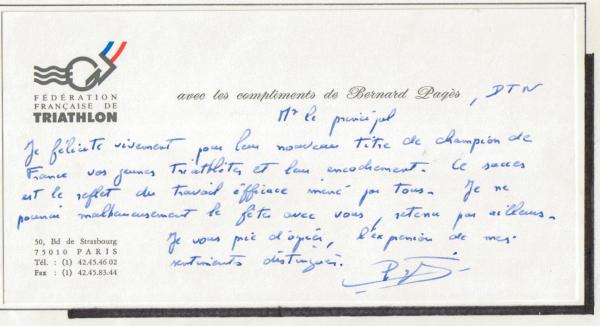 FÉDÉRATION
FRANÇAISE DE
TRIATHLON
avec les compliments de Bernard Pagès, DTN
Mr le principal
Je félicite vivement pour leur nouveau titre de champion de
France vos jeunes triathlètes et leur encadrement. Ce succès
est le reflet du travail efficace mené par tous. Je ne
pourrai malheureusement le fêter avec vous, retenu par ailleurs.
Je vous prie d'agréer, l'expression de mes
sentiments distingués.
50, Bd de Strasbourg
75010 PARIS
Tél. : (1) 42.45.46 02
Fax : (1) 42.45.83.44